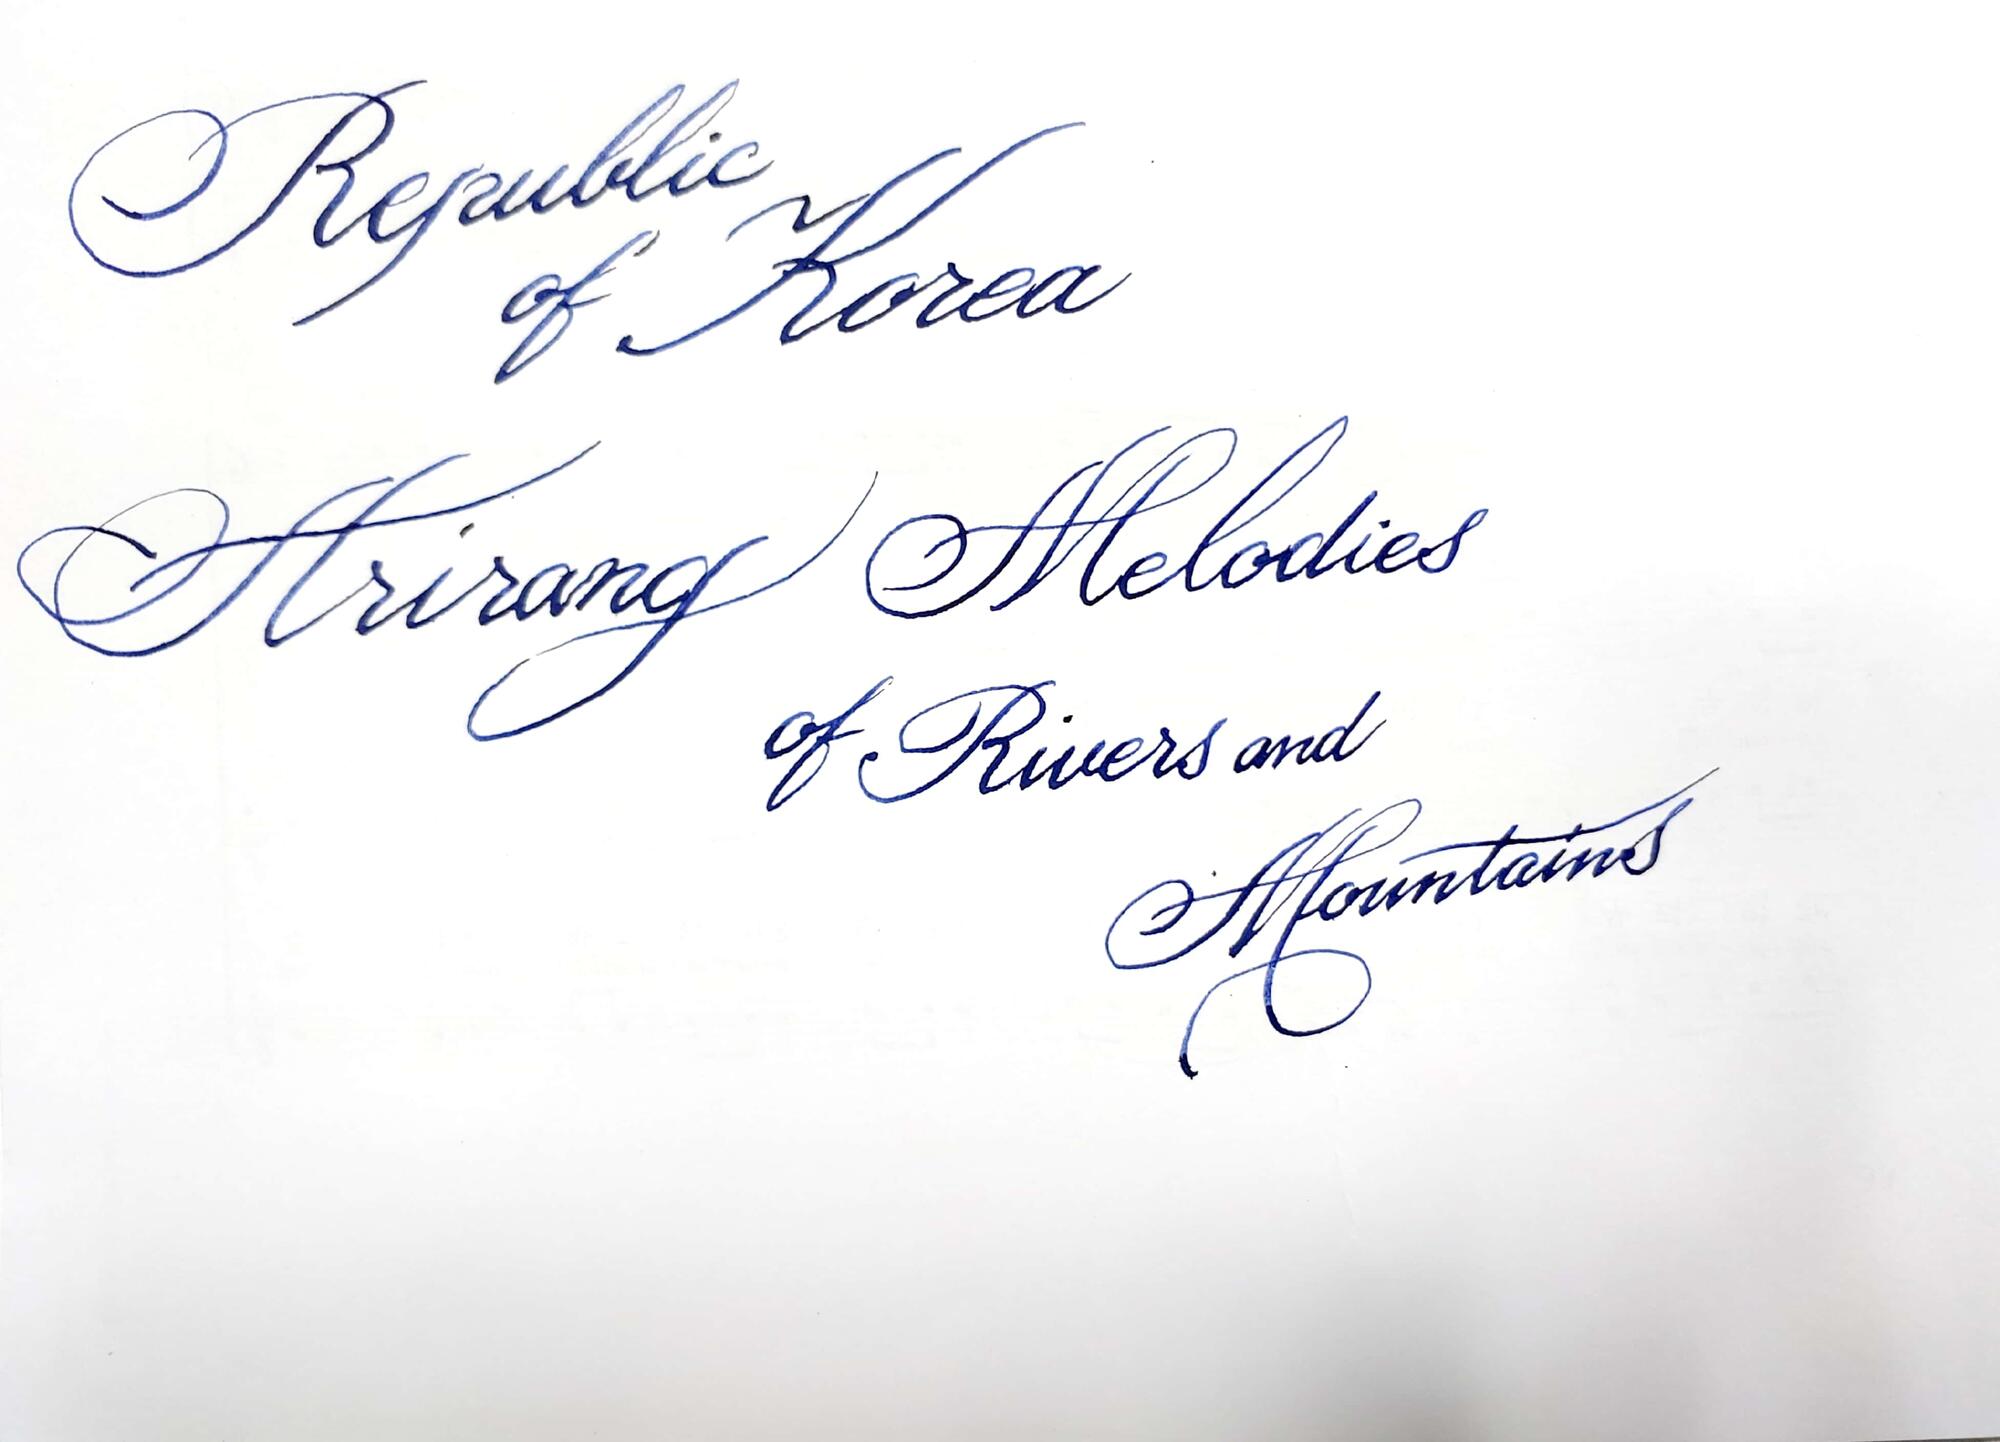 Republic
of Korea
Arirang Melodies
of Rivers and
Mountains